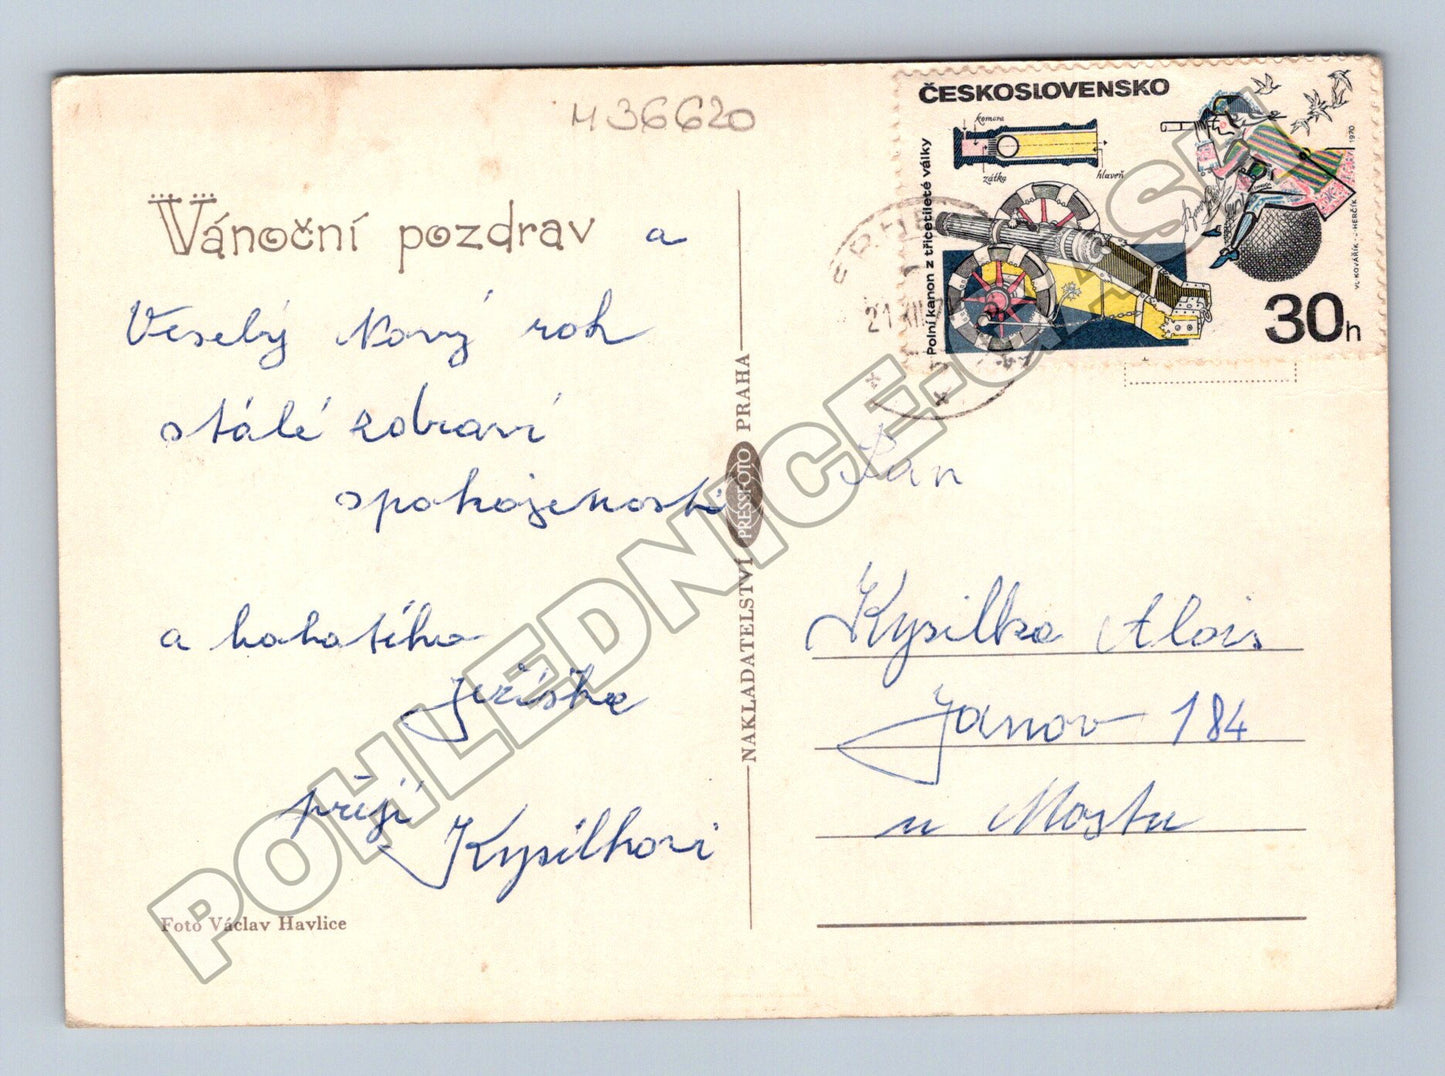 M 36620
ČESKOSLOVENSKO
komora
zátka
hlaveň
Polní kanon z třicetileté války
1970
VL. KOVÁŘÍK - J. HERČÍK
30h
21.XII.
Vánoční pozdrav a
Veselý Nový rok
stálé zdraví
spokojenost
a bohatého
Ježíška
přejí
Kysilkovi
Foto Václav Havlice
NAKLADATELSTVÍ PRESSFOTO PRAHA
Pan
Kysilka Alois
Janov 184
u Mostu
POHLEDNICE-SBAZAR